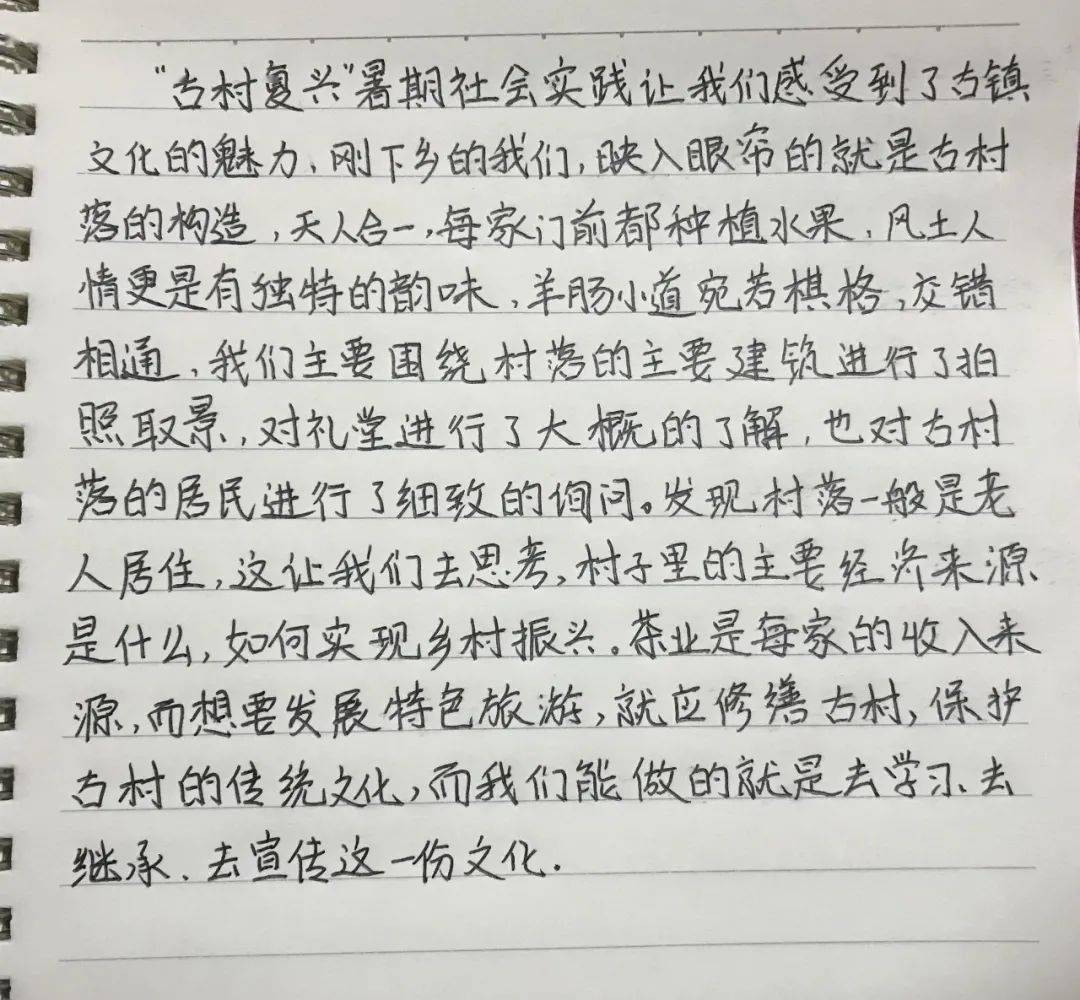 “古村复兴”暑期社会实践让我们感受到了古镇
文化的魅力、刚下乡的我们,映入眼帘的就是古村
落的构造,天人合一,每家门前都种植水果、风土人
情更是有独特的韵味,羊肠小道宛若棋格,交错
相通、我们主要围绕村落的主要建筑进行了拍
照取景,对礼堂进行了大概的了解,也对古村
落的居民进行了细致的询问。发现村落一般是老
人居住,这让我们去思考,村子里的主要经济来源
是什么,如何实现乡村振兴。茶业是每家的收入来
源,而想要发展特色旅游,就应修缮古村,保护
古村的传统文化,而我们能做的就是去学习、去
继承、去宣传这一份文化.